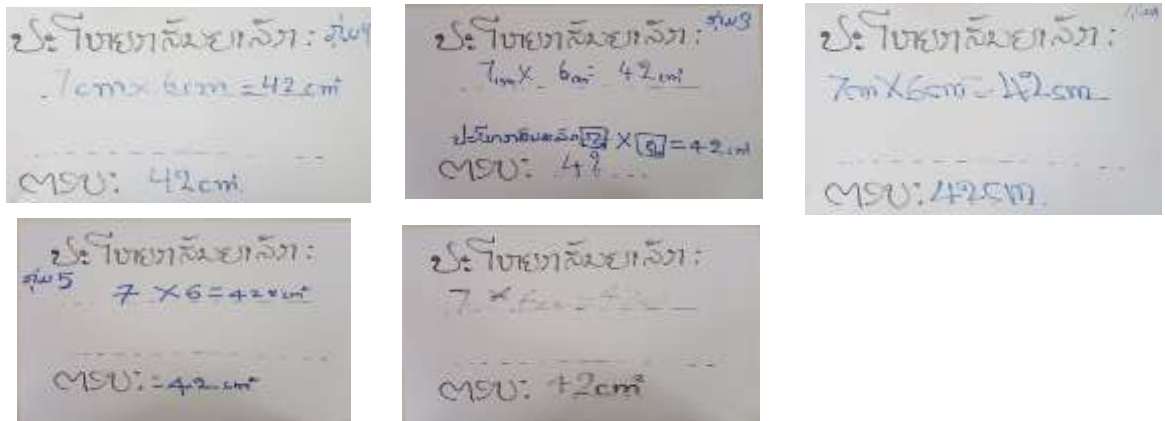 ປະໂຫຍກສັນຍາລັກ: ກຸ່ມ4
7cm × 6cm = 42 cm²
ຕອບ: 42cm²
ປະໂຫຍກສັນຍາລັກ: ກຸ່ມ3
7cm × 6cm = 42 cm²
× = 42 cm²
ຕອບ: 42
ປະໂຫຍກສັນຍາລັກ:
7cm × 6cm = 42cm
ຕອບ: 42cm
ປະໂຫຍກສັນຍາລັກ:
ກຸ່ມ 5 7 × 6 = 42 cm²
ຕອບ: = 42 cm²
ປະໂຫຍກສັນຍາລັກ:
7 × 6cm = 42
ຕອບ: 42cm²